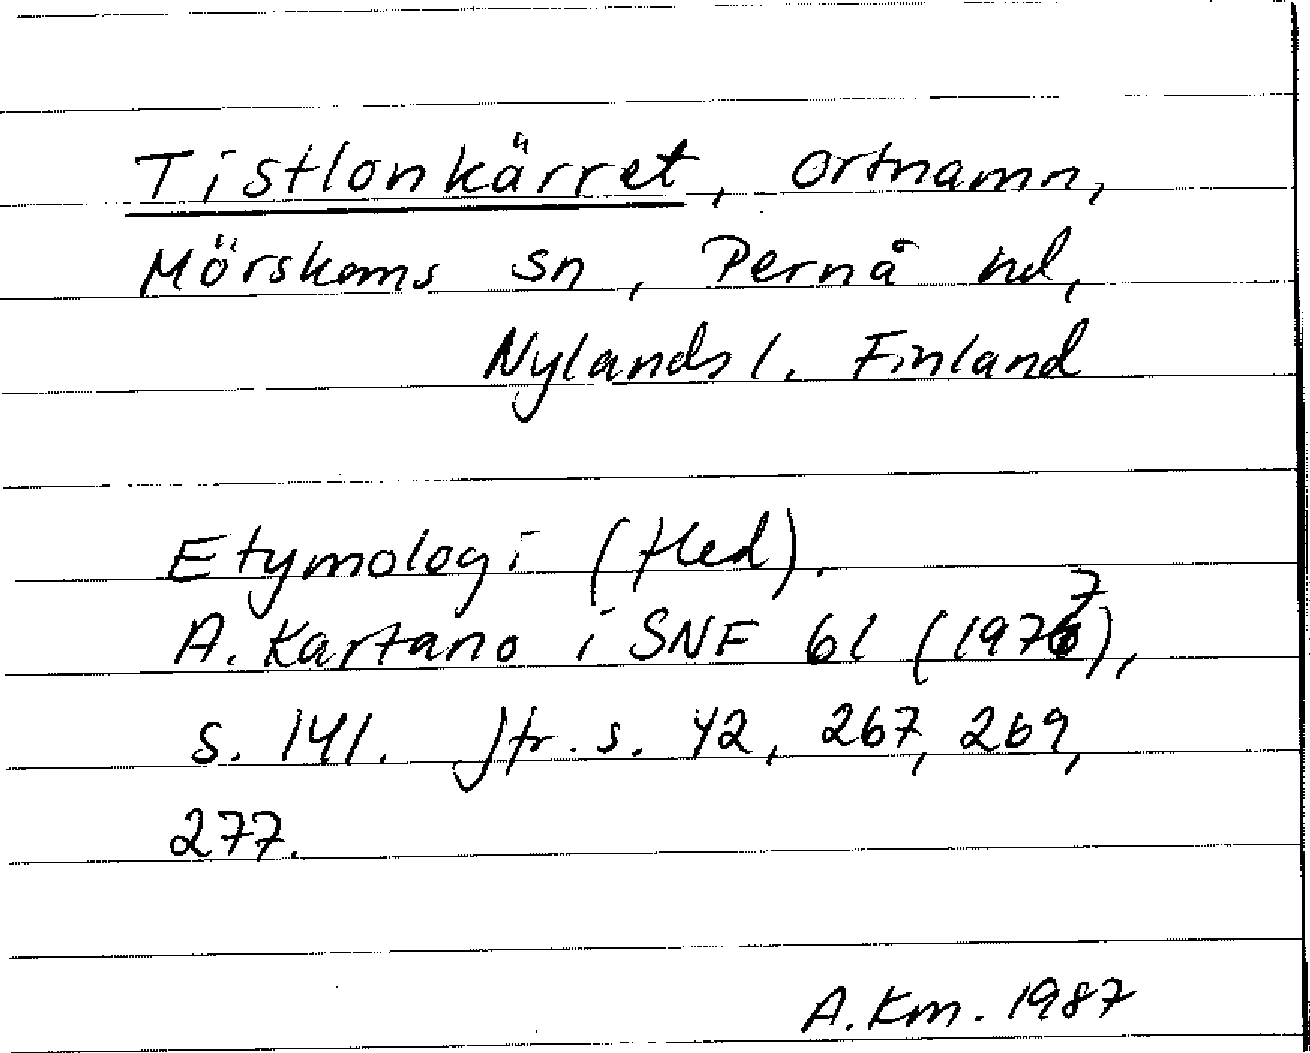 Tistlonkärret, ortnamn,
Mörskoms sn, Pernå hd,
Nylands l. Finland
Etymologi (fled).
A. Kartano i SNF 61 (1977),
s. 141. Jfr. s. 42, 267, 269,
277.
A. Km. 1987